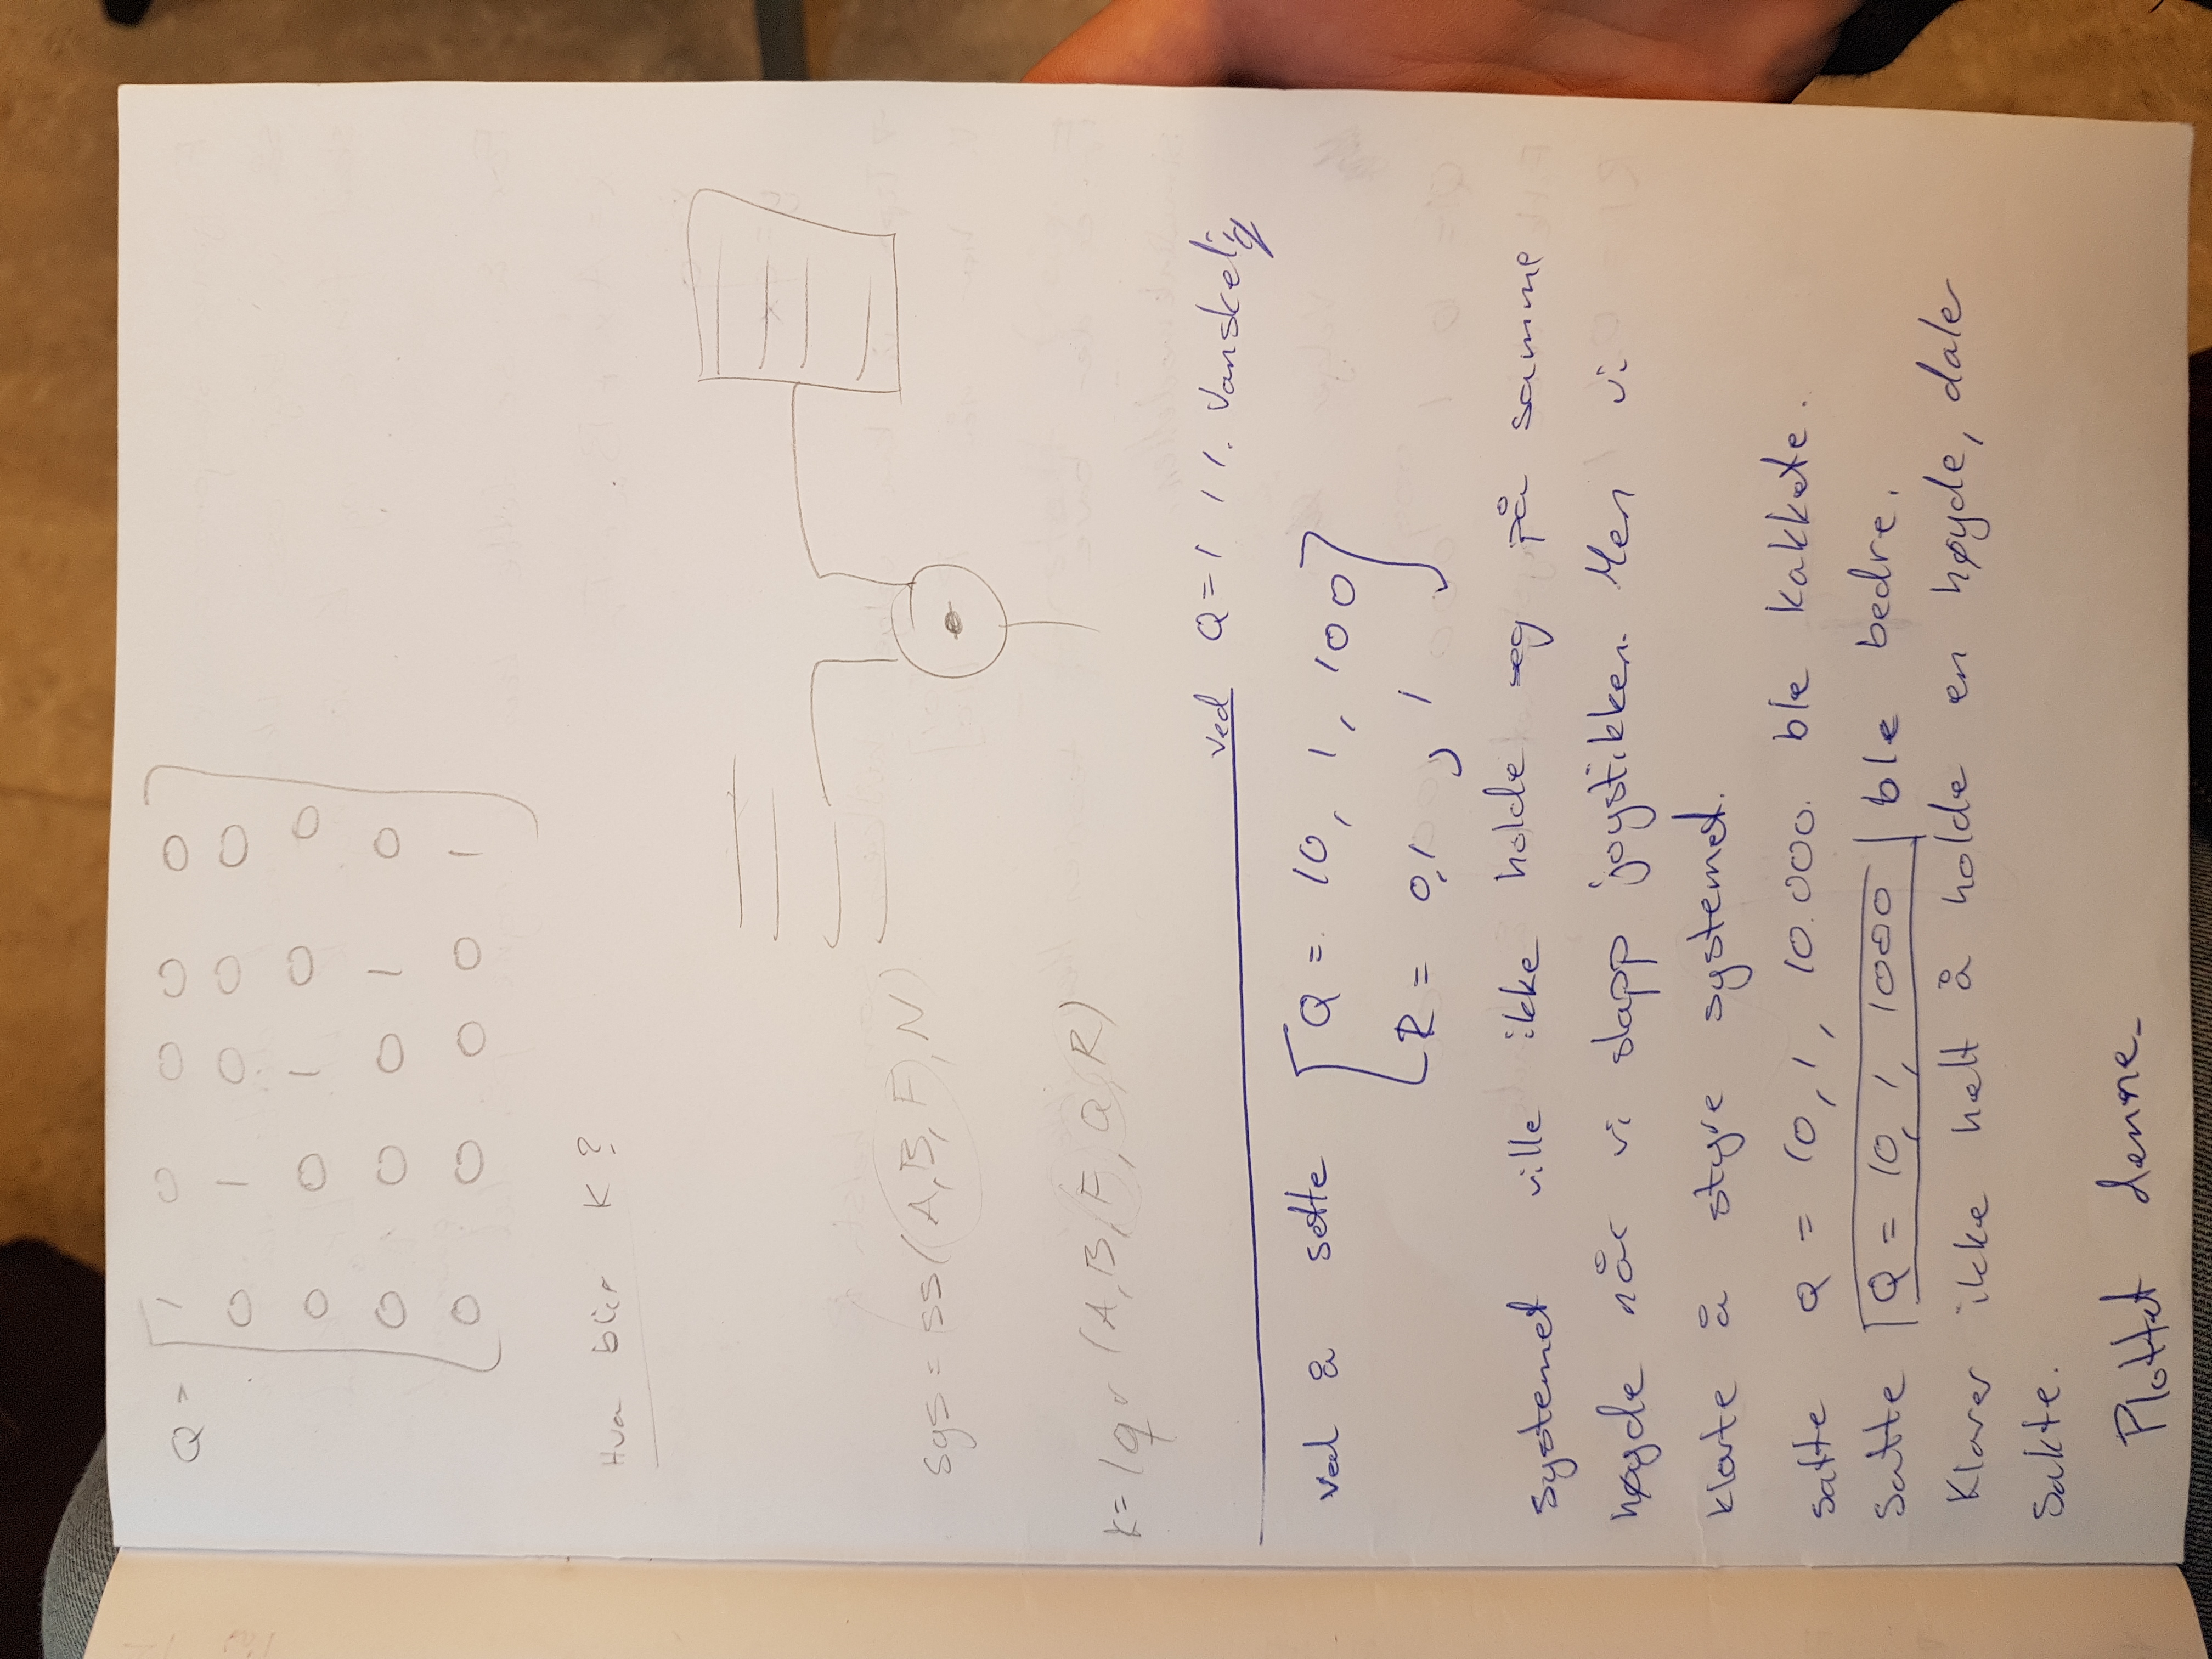 Q = [ 1 0 0 0 0
0 1 0 0 0
0 0 1 0 0
0 0 0 1 0
0 0 0 0 1 ]
Hva blir K?
sys = ss(A,B,F,N)
K = lqr (A,B,F,Q,R)
ved Q=1 1 1. Vanskelig
Ved å sette [ Q = 10, 1, 100 ]
R = 0,1 , 1
systemet ville ikke holde seg på samme
høyde når vi slapp joystikken. Men vi
klarte å styre systemet.
satte Q = 10, 1, 10.000. ble kakkete.
Satte Q = 10, 1, 1000 ble bedre.
Klarer ikke helt å holde en høyde, daler
sakte.
Plottet denne.